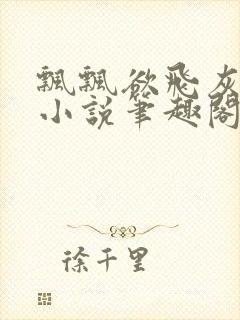 飄飄欲飛灰
小說筆趣閣
徐千里